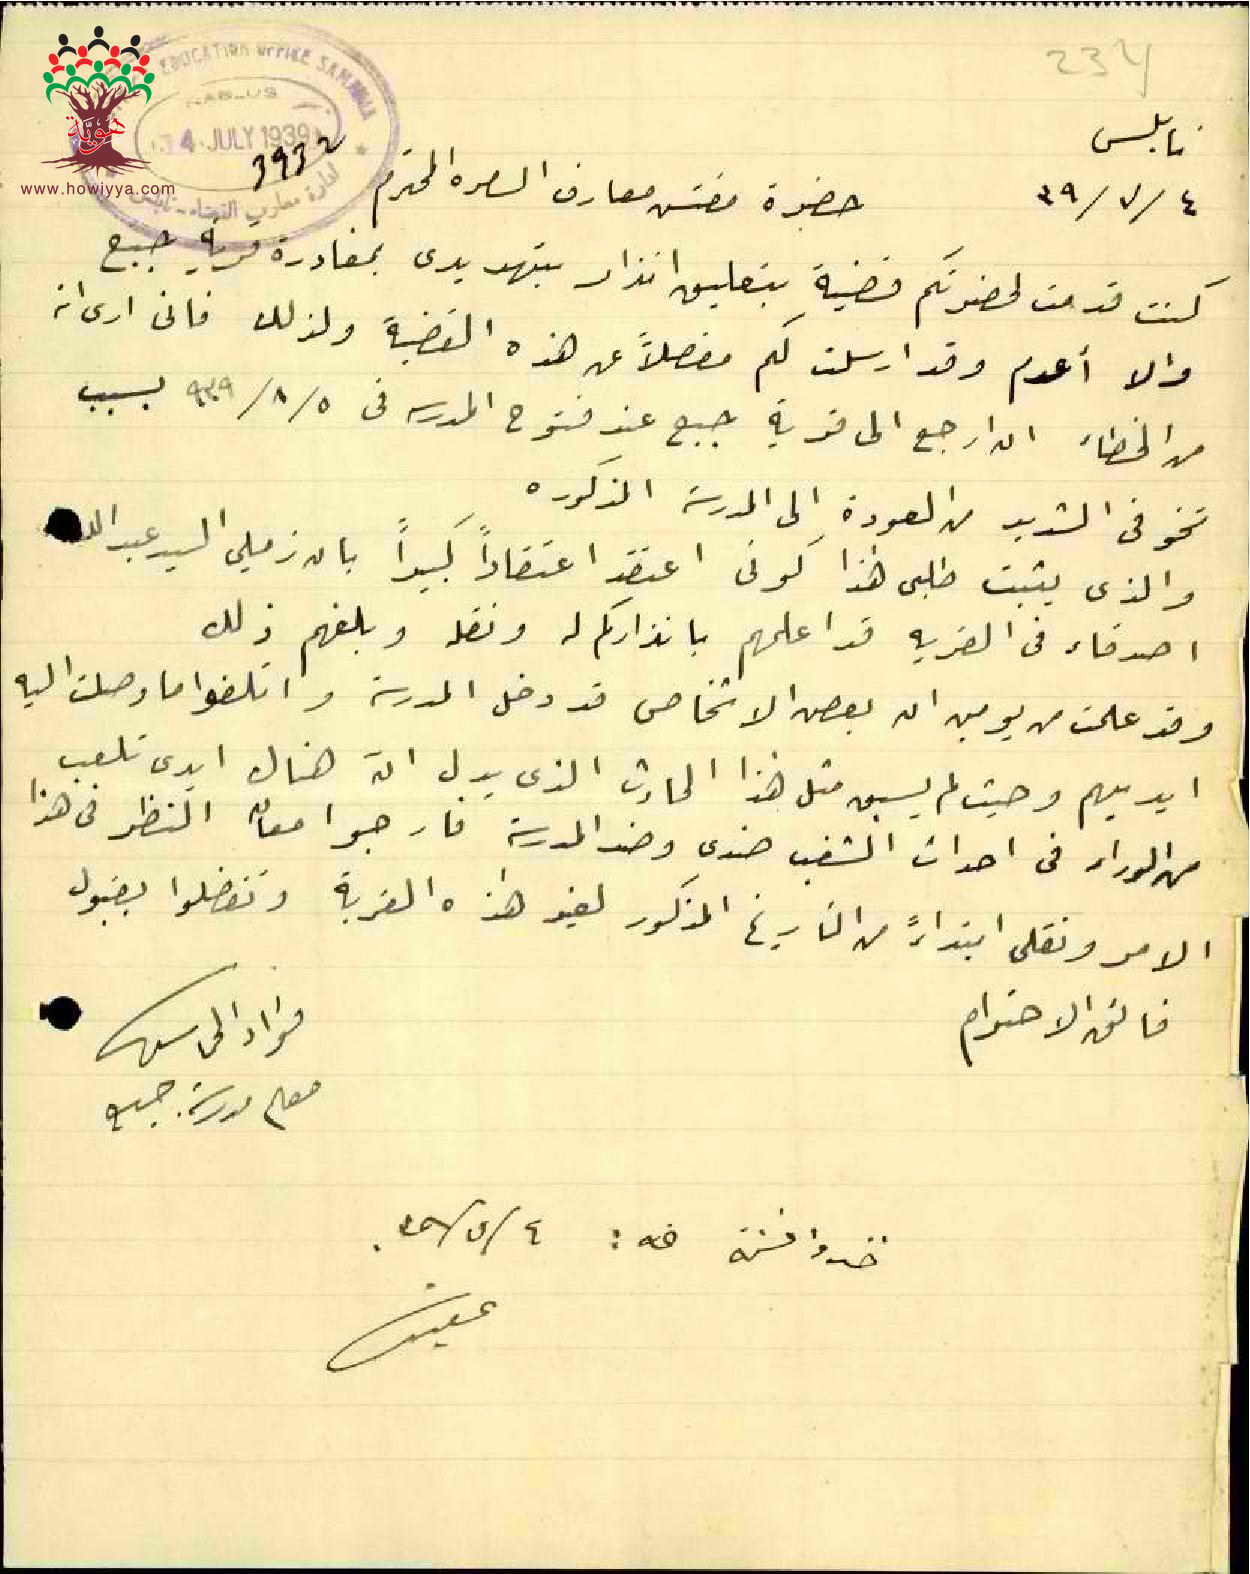 234
EDUCATION OFFICE SAMARIA
NABLUS
4 JULY 1939
ادارة معارف القضاء - نابلس
3932
هوية
www.howiyya.com
نابلس
٤/٧/٣٩
حضرة مفتش معارف السامره المحترم
كنت قدمت لحضرتكم قضية بتعليق انذار بتهديدى بمغادرة قرية جبع
والا أعدم وقد ارسلت لكم مفصلاً عن هذه القضية ولذلك فانى ارى انه
من الخطاء ان ارجع الى قرية جبع عند فتوح المدرسه فى ٥/٨/٩٣٩ بسبب
تخوفى الشديد من العودة الى المدرسة المذكوره
والذى يثبت طلبى هذا كونى اعتقد اعتقاداً كبيراً بان زميلي السيد عبد الله
اصدقاء فى القريه قد اعلمهم بانذاركم له ونقله وبلغهم ذلك
وقد علمت من يومين ان بعض الاشخاص قد دخل المدرسة و اتلفوا ما وصلت اليه
ايدييهم وحيث لم يسبق مثل هذا الحادث الذى يدل ان هناك ايدى تلعب
من الوراء فى احداث الشغب ضدى وضد المدرسة فارجوا النظر فى هذا
الامر ونقلى ابتداءً من التاريخ المذكور لغير هذه القرية وتفضلوا بقبول
فائق الاحترام
فؤاد
معلم مدرسة جبع
٤/٧/٣٩